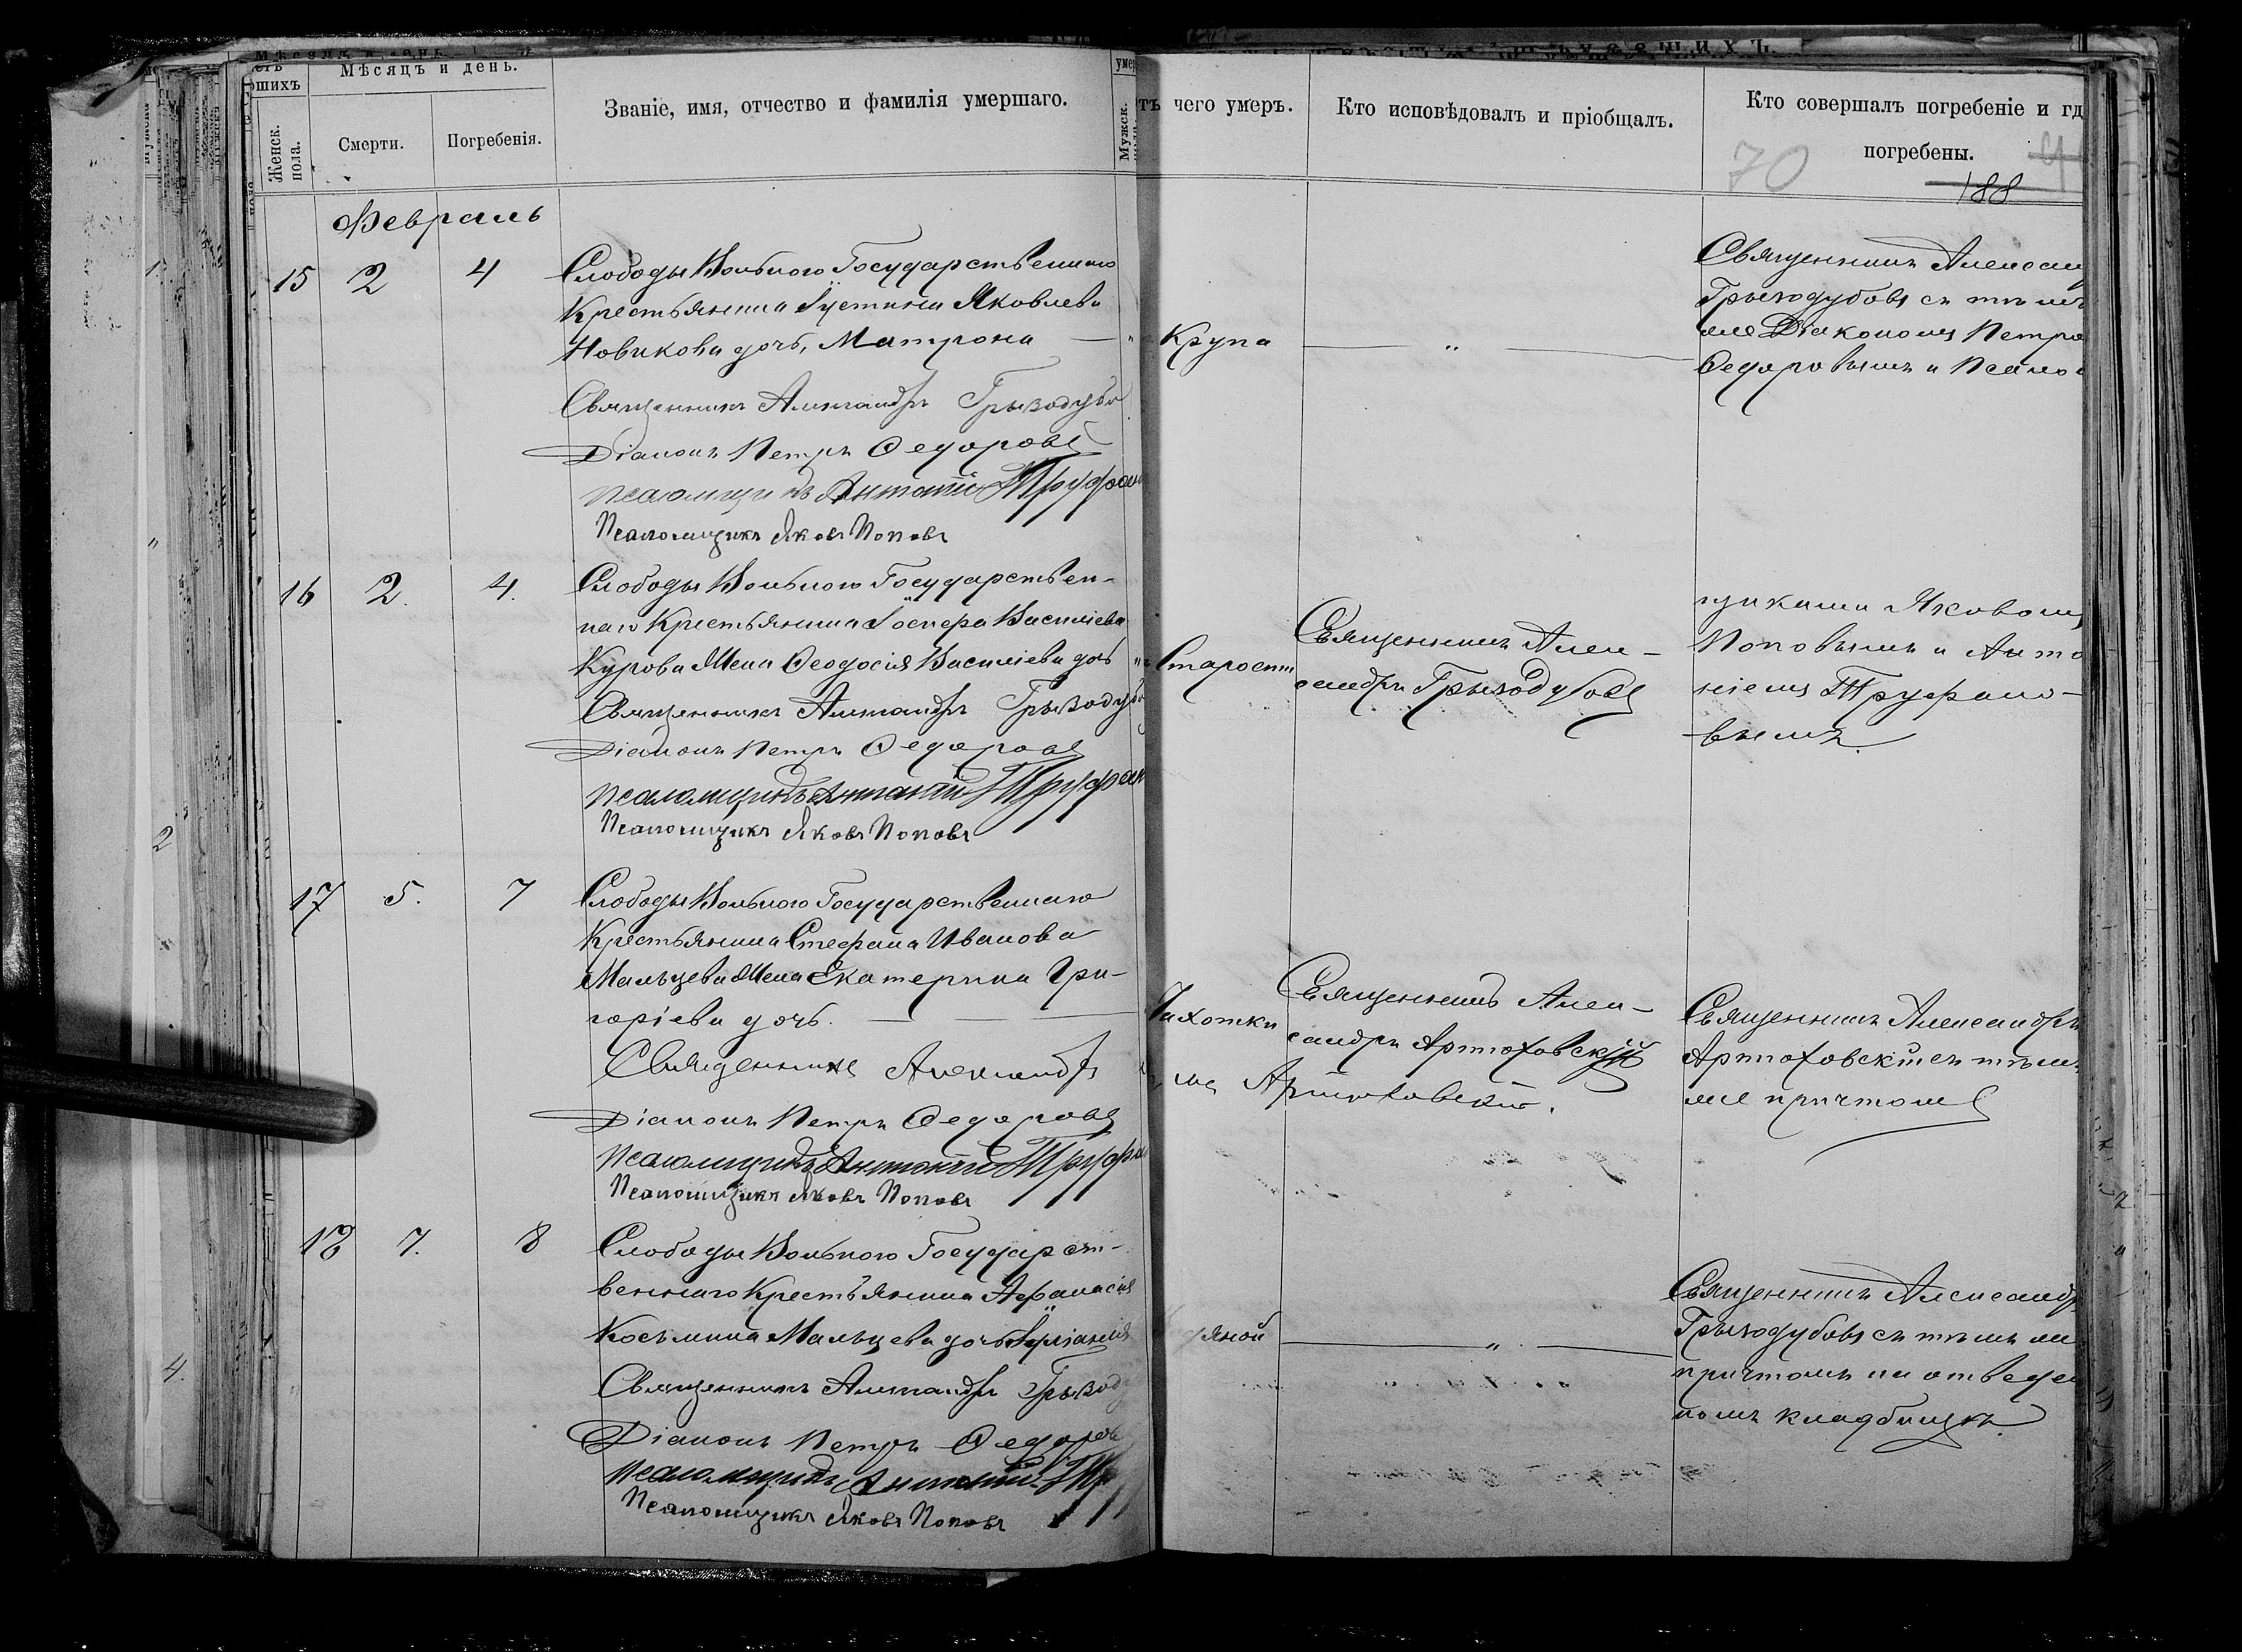 Мѣсяцъ и день.
шихъ
Женск. пола.
Смерти.
Погребенія.
Званіе, имя, отчество и фамилія умершаго.
Мужск.
чего умеръ.
Кто исповѣдовалъ и пріобщалъ.
Кто совершалъ погребеніе и гд
погребены.
70
188
Февраль
15 2 4
Слободы Вольного Государственнаго
Крестьянина Іустина Яковлева
Новикова дочь, Матрона
Крупа
"
Священникъ Алексан
Грызодубовъ съ тѣмъ
же Діакономъ Петро
Ѳедоровымъ и Псалом
Священникъ Александръ Грызодубо
Діаконъ Петръ Ѳедоровъ
Псаломщикъ Антоній Труфан
Псаломщикъ Яковъ Поповъ
16 2. 4.
Слободы Вольного Государствен-
наго Крестьянина Васильева
Курова Жена Ѳеодосія Васильева дочь
Старости
Священникъ Алек-
сандръ Грызодубовъ
щиками Яковомъ
Поповымъ и Анто
ніемъ Труфано-
вымъ.
Священникъ Александръ Грызодуб
Діаконъ Петръ Ѳедоровъ
Псаломщикъ Антоній Труфан
Псаломщикъ Яковъ Поповъ
17 5. 7
Слободы Вольного Государственнаго
Крестьянина Стефана Иванова
Мальцева Жена Екатерина Гри-
горіева дочь.
Чахотки
Священникъ Алек-
сандръ Артюховскій
Священникъ Александръ
Артюховскій съ тѣмъ
же причтомъ
Священникъ Александръ
Артюховскій.
Діаконъ Петръ Ѳедоровъ
Псаломщикъ Антоній Труфан
Псаломщикъ Яковъ Поповъ
18 7. 8
Слободы Вольного Государст-
веннаго Крестьянина Аѳанасія
Косьмина Мальцева дочь Іуліанія
"
Священникъ Александр
Грызодубовъ съ тѣмъ же
причтомъ на отведен
номъ кладбищѣ.
Священникъ Александръ Грызод
Діаконъ Петръ Ѳедоровъ
Псаломщикъ Антоній Тру
Псаломщикъ Яковъ Поповъ